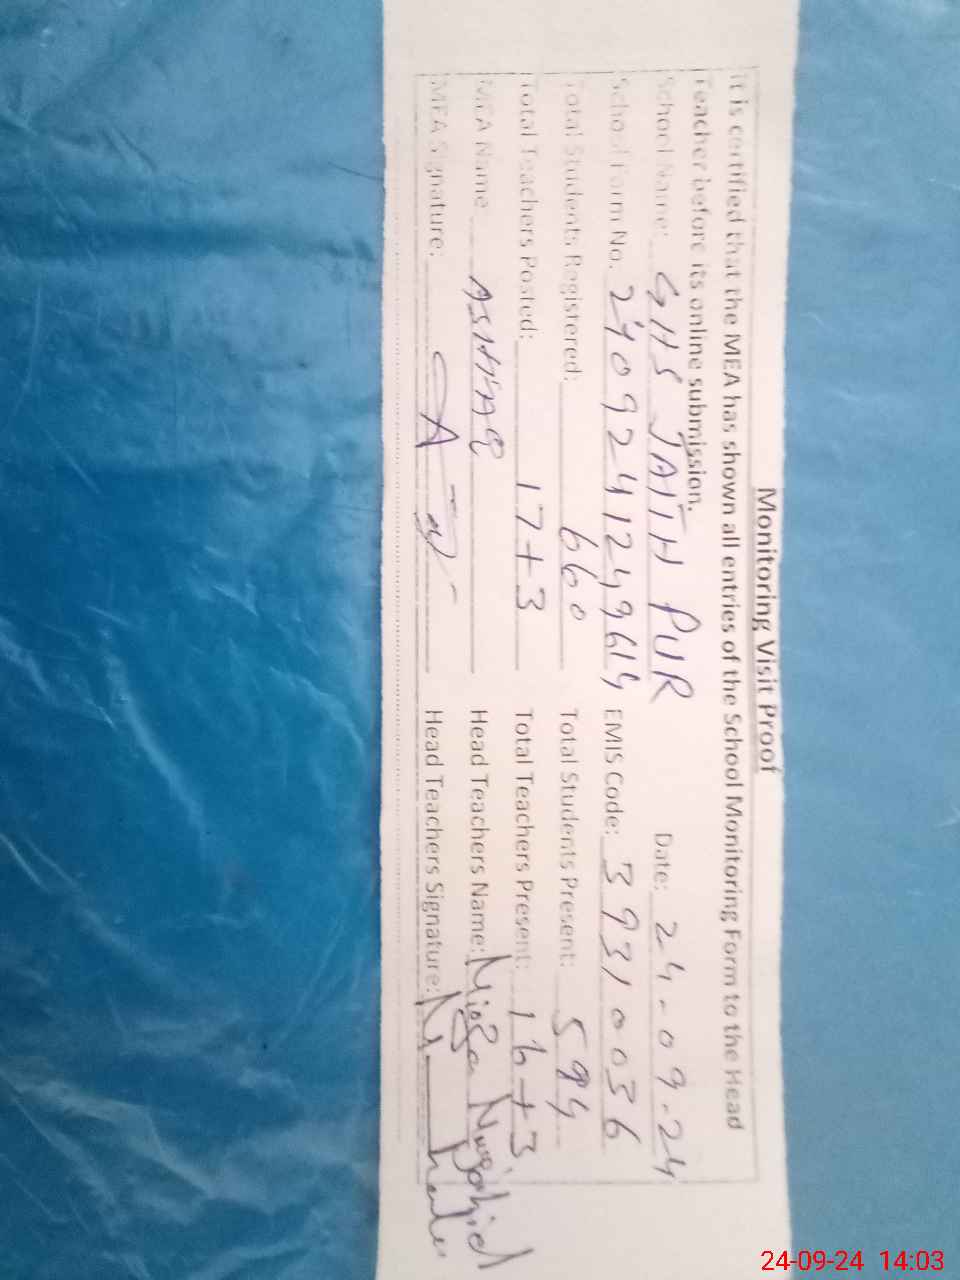 Monitoring Visit Proof
It is certified that the MEA has shown all entries of the School Monitoring Form to the Head
Teacher before its online submission.
School Name: GHS JAITH PUR Date: 24-09-24
School Form No. EMIS Code: 39310036
Total Students Registered: 660 Total Students Present: 594
Total Teachers Posted: 17+3 Total Teachers Present: 16+3
MEA Name ASHFAQ Head Teachers Name:
MEA Signature: Head Teachers Signature:
24-09-24 14:03